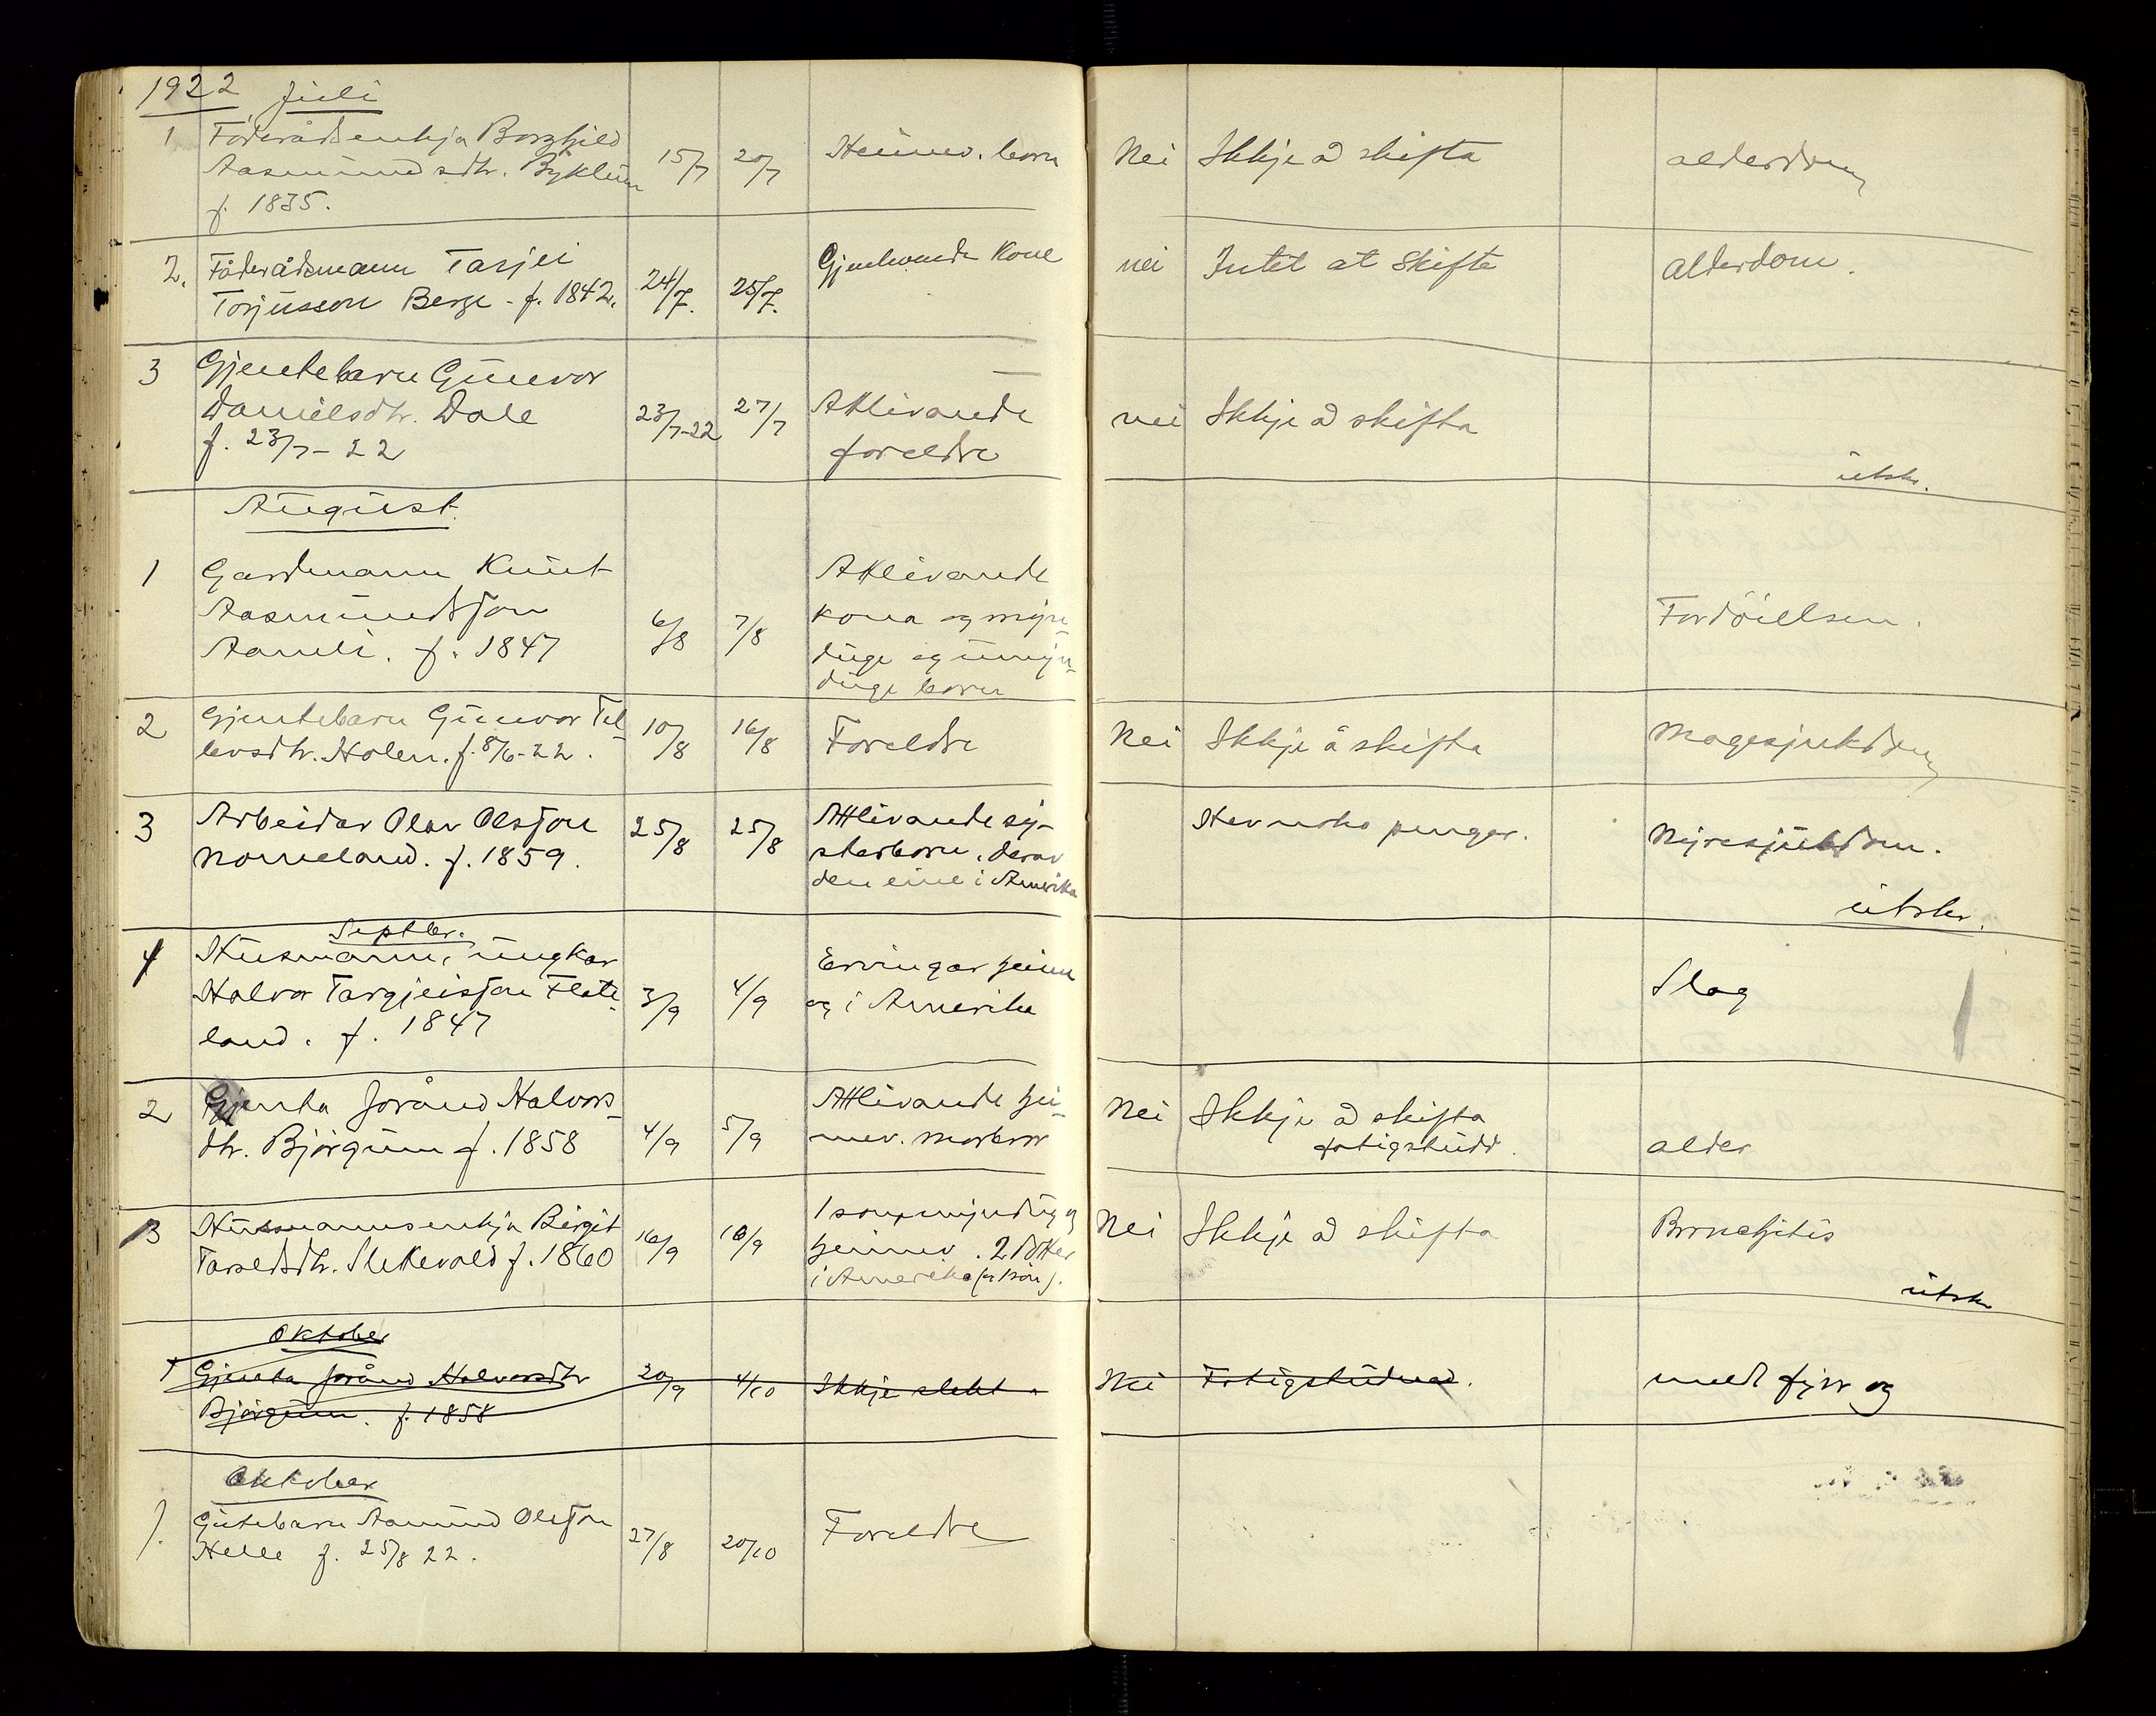 1922 Juli
1 Föderådsenkja Borghild
Aasmundsdtr. Byklum
f. 1835.
15/7 20/7 Heimev. born Nei Ikkje å skifta alderdom
2. Föderådsmann Tarjei
Torjusson Berge - f. 1842.
24/7. 25/7. Gjenlevende Kone nei Intet at Skifte Alderdom.
3 Gjentebarn Gunvor
Danielsdtr. Dale
f. 23/7 - 22
23/7-22 27/7 Attlivande
foreldre
nei Ikkje å skifta
utskr.
August.
1 Gardmann Knut
Aasmundsson
Aamli. f. 1847
6/8 7/8 Attlivande
kona og myn-
duge og umyn-
duge born
Fordöielsen.
2 Gjentebarn Gunvor Tel-
levsdtr. Holen. f. 8/6-22.
10/8 16/8 Foreldre Nei Ikkje å skifta Magesjukdom
3 Arbeidar Olav Olsson
Nomeland. f. 1859.
25/8 25/8 Attlivande sy-
sterborn, derav
den eine i Amerika
Hev noko pengar. Nyresjukdom.
utskr.
Septbr.
1 Husmann, ungkar
Halvor Targjeisson Flate-
land. f. 1847
3/9 4/9 Ervingar heime
og i Amerika
Slag
2 Gjenta Joránd Halvors-
dtr. Björgum f. 1858
4/9 5/9 Attlivande hei-
mev. morbror
Nei Ikkje å skifta
fatigstudd.
alder
3 Husmannsenkja Birgit
Tarældsdtr. Slettevold f. 1860
16/9 18/9 1 son, myndug og
heimev. 2 dötter
i Amerika
Nei Ikkje å skifta Bronchitis
utskr
Oktober
1 Gjenta Joránd Halvorsdtr
Björgum. f. 1858
30/9 4/10 Ikkje slekt. Nei Fatigstudnad. meldt fyrr og
Oktober
1. Gutebarn Aamund Olsson
Helle f. 25/8 22.
27/8 20/10 Foreldre